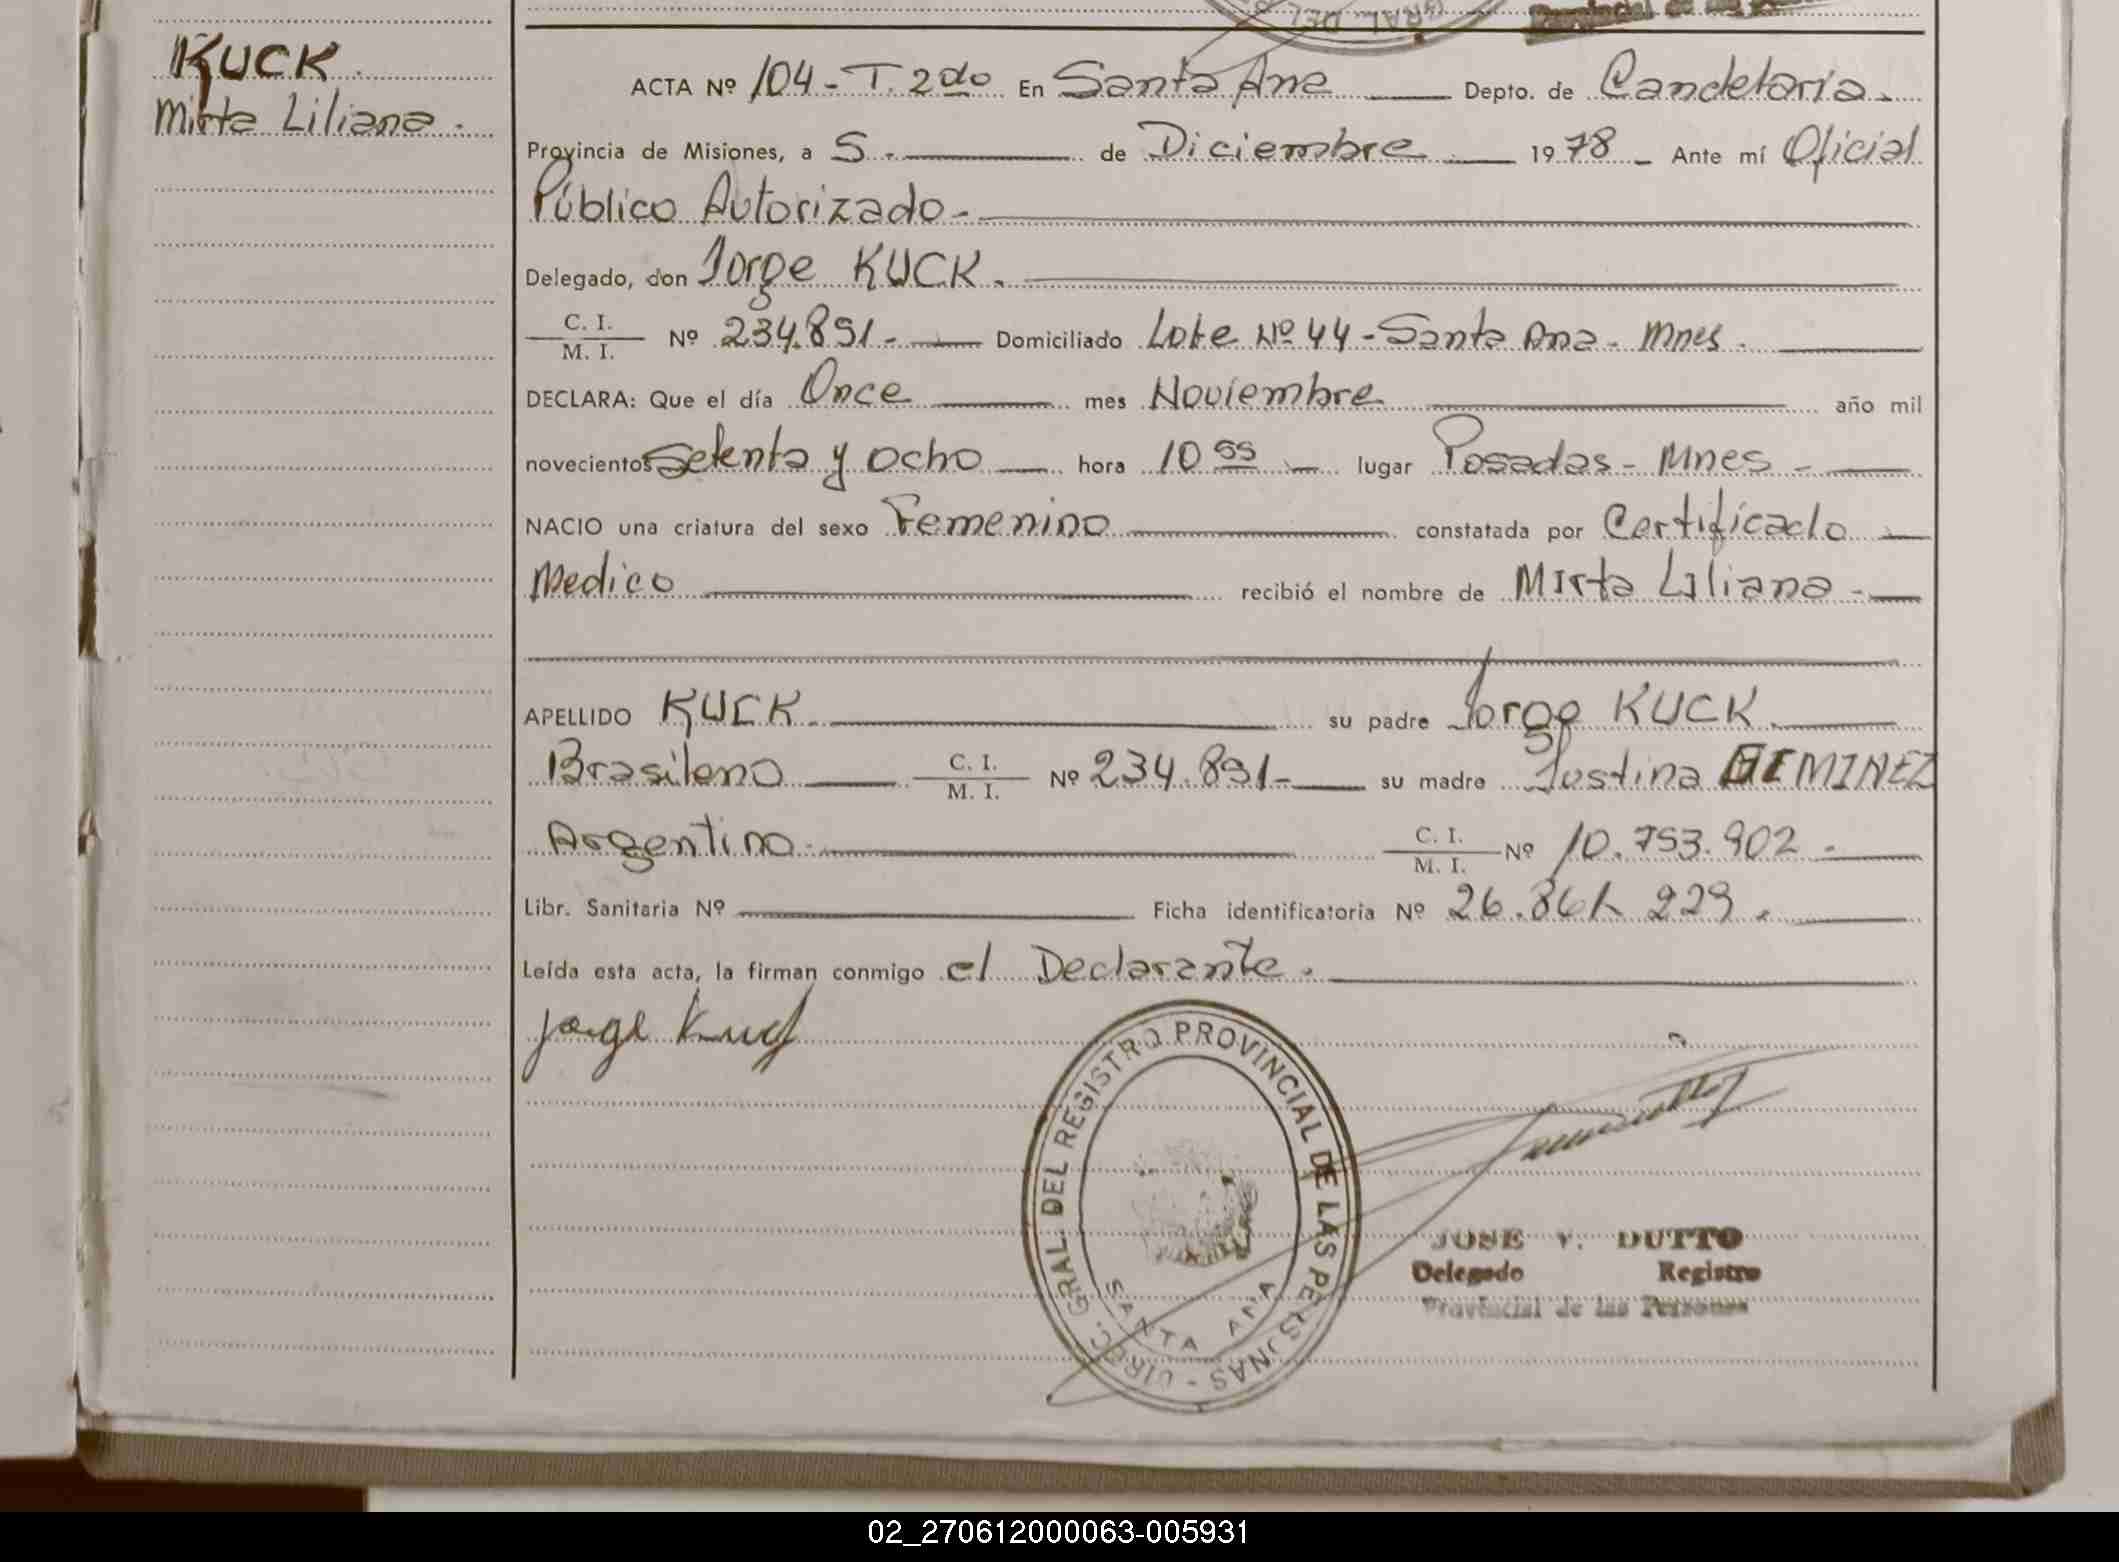 KUCK.
Mirta Liliana.
ACTA Nº 104 - T. 2do En Santa Ana Depto. de Candelaria.
Provincia de Misiones, a 5 - de Diciembre 1978 - Ante mí Oficial
Público Autorizado -
Delegado, don Jorge KUCK.
C. I.
M. I. Nº 234.891 - Domiciliado Lote Nº 44 - Santa Ana - Mnes.
DECLARA: Que el día Once mes Noviembre año mil
novecientos Setenta y Ocho hora 10 55 lugar Posadas - Mnes -
NACIO una criatura del sexo Femenino constatada por Certificado
Medico recibió el nombre de Mirta Liliana -
APELLIDO KUCK. su padre Jorge KUCK.
Brasileno C. I.
M. I. Nº 234.891 - su madre Justina GIMINEZ
Argentina C. I.
M. I. Nº 10.753.902 -
Libr. Sanitaria Nº Ficha identificatoria Nº 26.861 229.
Leída esta acta, la firman conmigo el Declarante.
Jorge Kuck
DIREC. GRAL. DEL REGISTRO PROVINCIAL DE LAS PERSONAS -
SANTA ANA
JOSE V. DUTTO
Delegado Registro
Provincial de las Personas
02_270612000063-005931